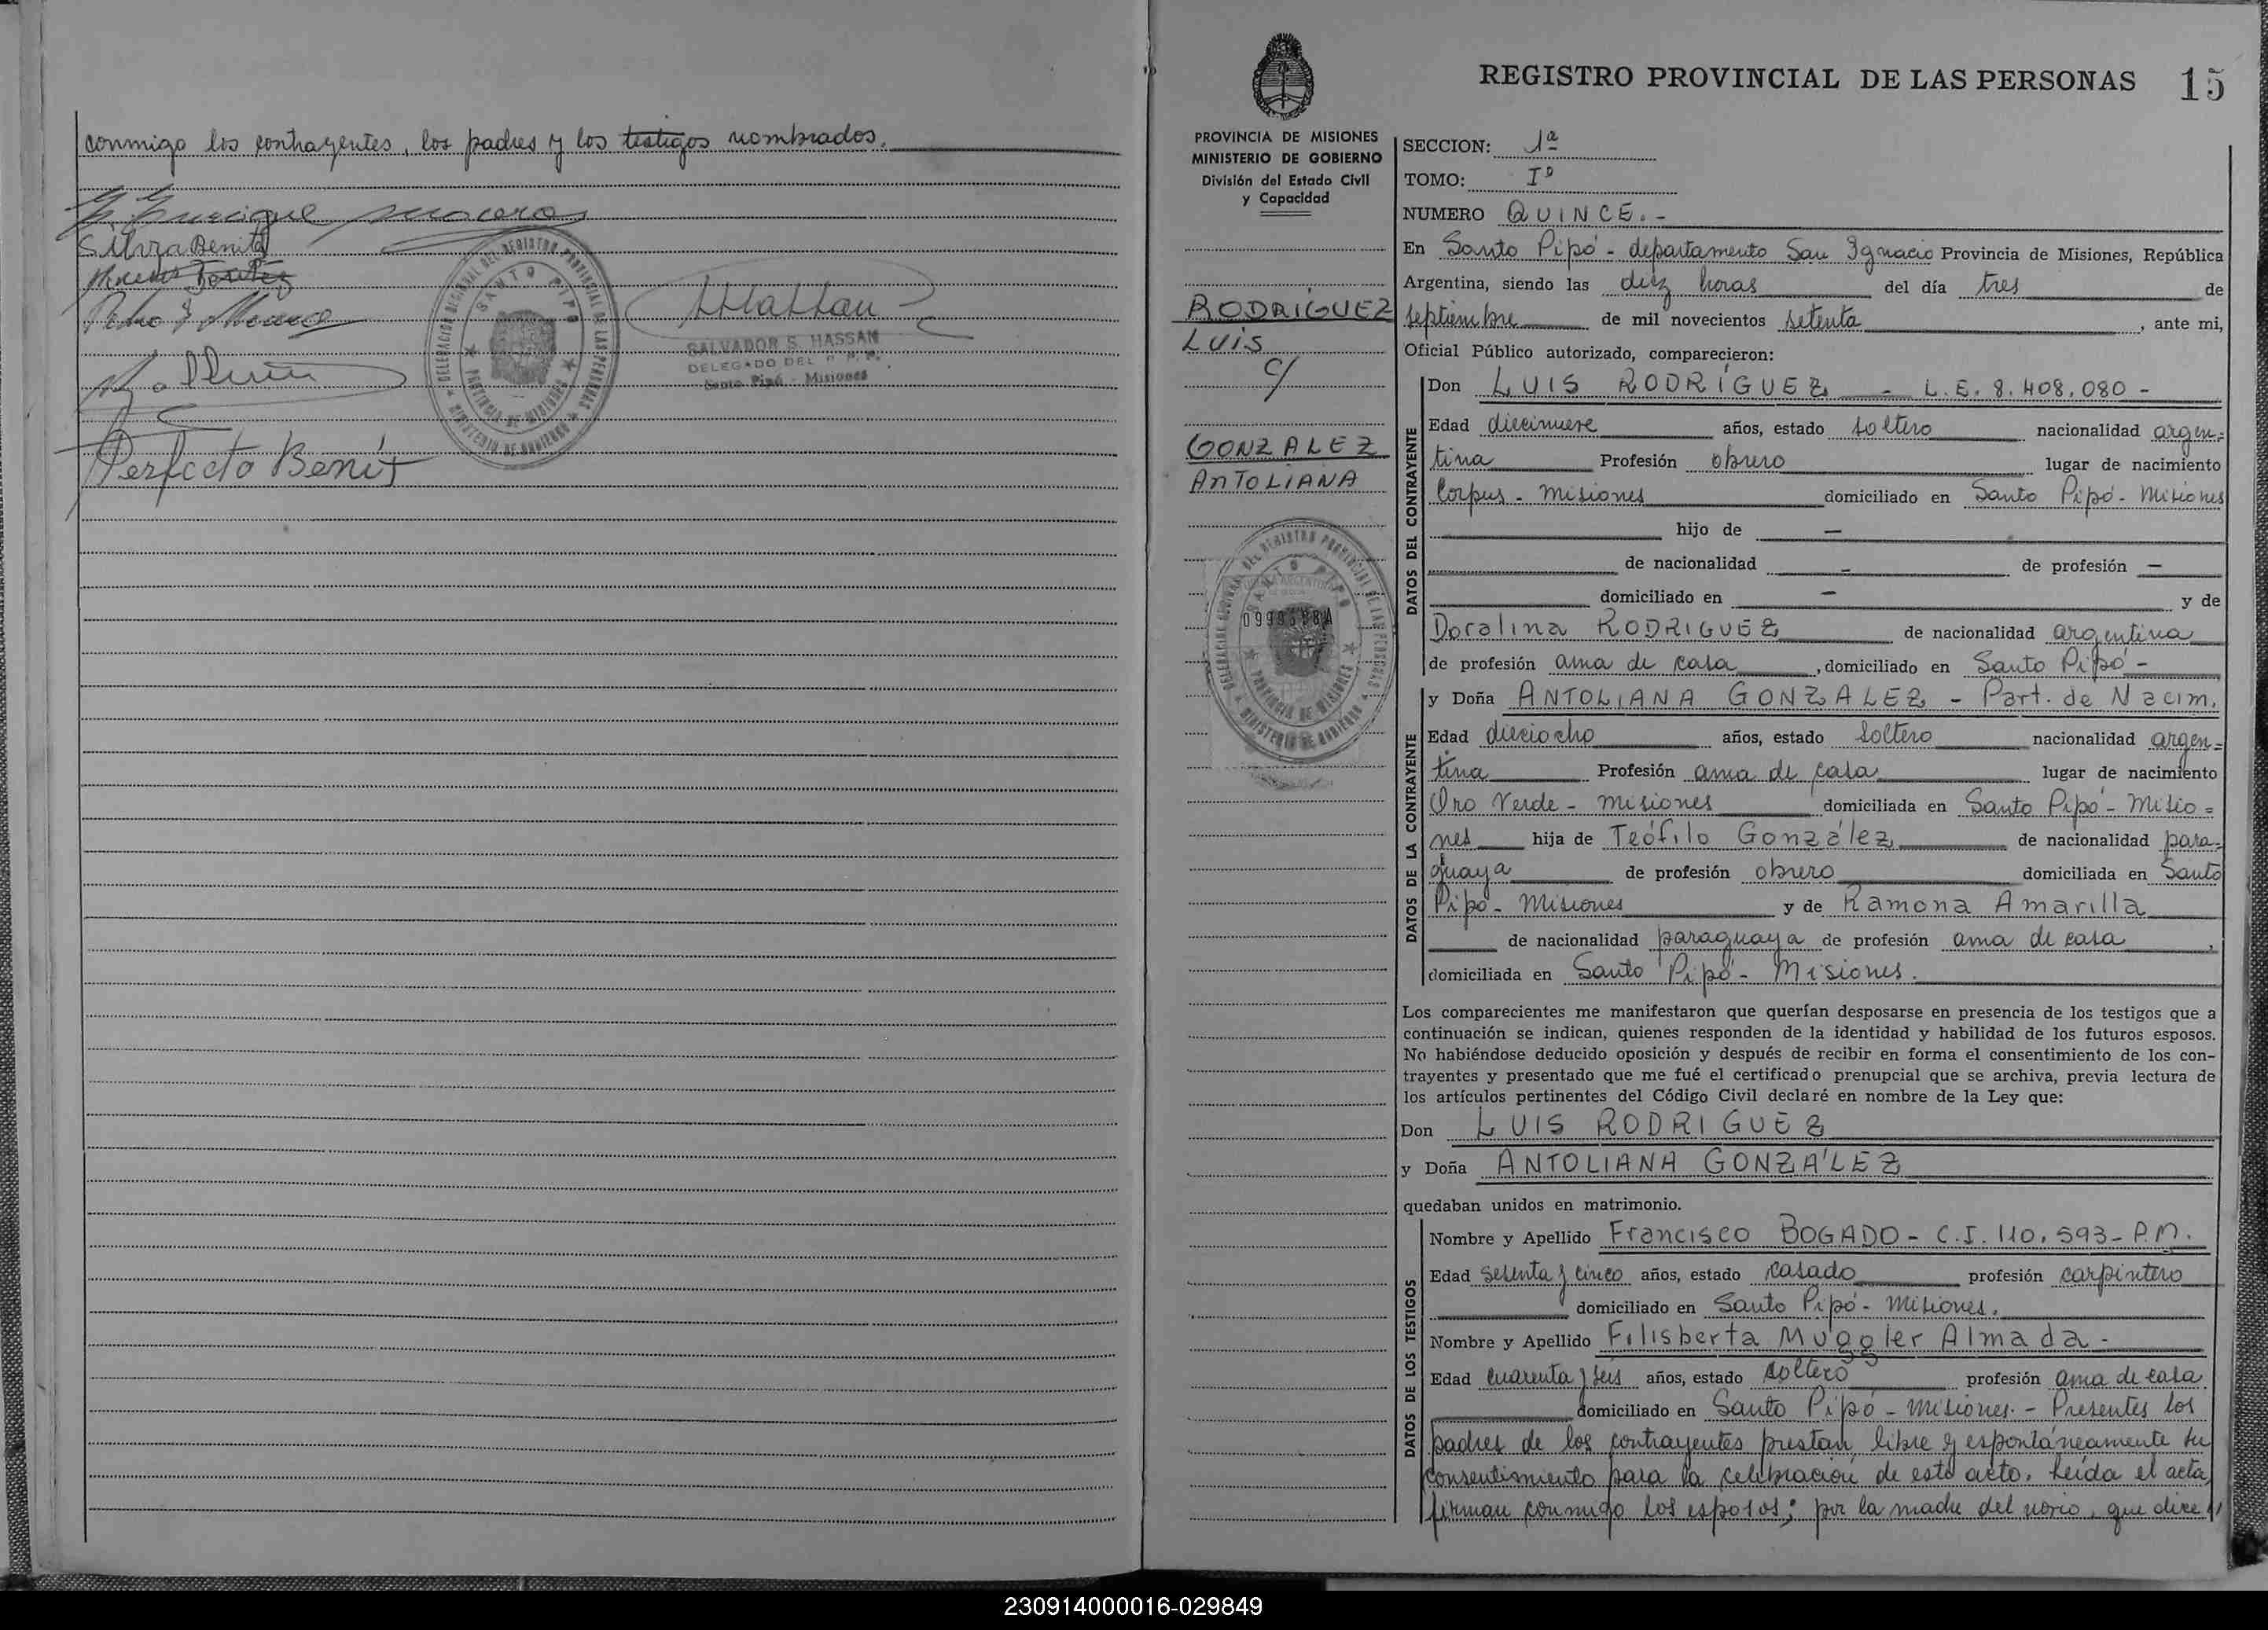 conmigo los contrayentes, los padres y los testigos nombrados.
Silvia Benita
Perfecto Benit
DELEGACION REGIONAL DEL REGISTRO PROVINCIAL DE LAS PERSONAS
SANTO PIPO
PROVINCIA DE MISIONES
MINISTERIO DE GOBIERNO
SALVADOR S. HASSAN
DELEGADO DEL R. P. P.
Santo Pipó - Misiones
REGISTRO PROVINCIAL DE LAS PERSONAS 15
PROVINCIA DE MISIONES
MINISTERIO DE GOBIERNO
División del Estado Civil
y Capacidad
RODRÍGUEZ
LUIS
c/
GONZALEZ
ANTOLIANA
DELEGACION REGIONAL DEL REGISTRO PROVINCIAL DE LAS PERSONAS
SANTO PIPO
PROVINCIA DE MISIONES
MINISTERIO DE GOBIERNO
SECCION: 1ª
TOMO: Iº
NUMERO QUINCE.-
En Santo Pipó - departamento San Ignacio Provincia de Misiones, República
Argentina, siendo las diez horas del día tres de
septiembre de mil novecientos setenta, ante mi,
Oficial Público autorizado, comparecieron:
DATOS DEL CONTRAYENTE
Don LUIS RODRÍGUEZ - L.E. 8.408.080 -
Edad diecinueve años, estado soltero nacionalidad argen=
tina Profesión obrero lugar de nacimiento
Corpus - Misiones domiciliado en Santo Pipó - Misiones
hijo de —
de nacionalidad — de profesión —
domiciliado en — y de
Doralina RODRIGUEZ de nacionalidad argentina
de profesión ama de casa, domiciliado en Santo Pipó -
DATOS DE LA CONTRAYENTE
y Doña ANTOLIANA GONZALEZ - Part. de Nacim.
Edad dieciocho años, estado soltero nacionalidad argen=
tina Profesión ama de casa lugar de nacimiento
Oro Verde - Misiones domiciliada en Santo Pipó - Misio=
nes hija de Teófilo González de nacionalidad para=
guaya de profesión obrero domiciliada en Santo
Pipó - Misiones y de Ramona Amarilla
de nacionalidad paraguaya de profesión ama de casa,
domiciliada en Santo Pipó - Misiones.
Los comparecientes me manifestaron que querían desposarse en presencia de los testigos que a
continuación se indican, quienes responden de la identidad y habilidad de los futuros esposos.
No habiéndose deducido oposición y después de recibir en forma el consentimiento de los con-
trayentes y presentado que me fué el certificado prenupcial que se archiva, previa lectura de
los artículos pertinentes del Código Civil declaré en nombre de la Ley que:
Don LUIS RODRIGUEZ
y Doña ANTOLIANA GONZÁLEZ
quedaban unidos en matrimonio.
DATOS DE LOS TESTIGOS
Nombre y Apellido Francisco BOGADO - C.I. 110.593 - P.M.
Edad setenta y cinco años, estado casado profesión carpintero
domiciliado en Santo Pipó - Misiones.
Nombre y Apellido Filisberta Muggler Almada -
Edad cuarenta y seis años, estado soltero profesión ama de casa
domiciliado en Santo Pipó - Misiones. - Presentes los
padres de los contrayentes prestan libre y espontáneamente su
consentimiento para la celebración de este acto. Leída el acta,
firman conmigo los esposos; por la madre del novio, que dice
230914000016-029849